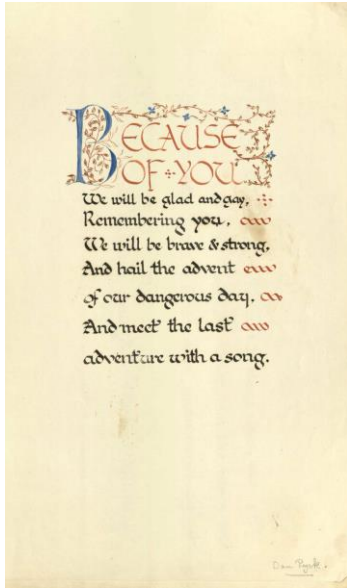 BECAUSE
OF YOU
We will be glad and gay,
Remembering you,
We will be brave & strong,
And hail the advent
of our dangerous day,
And meet the last
adventure with a song.